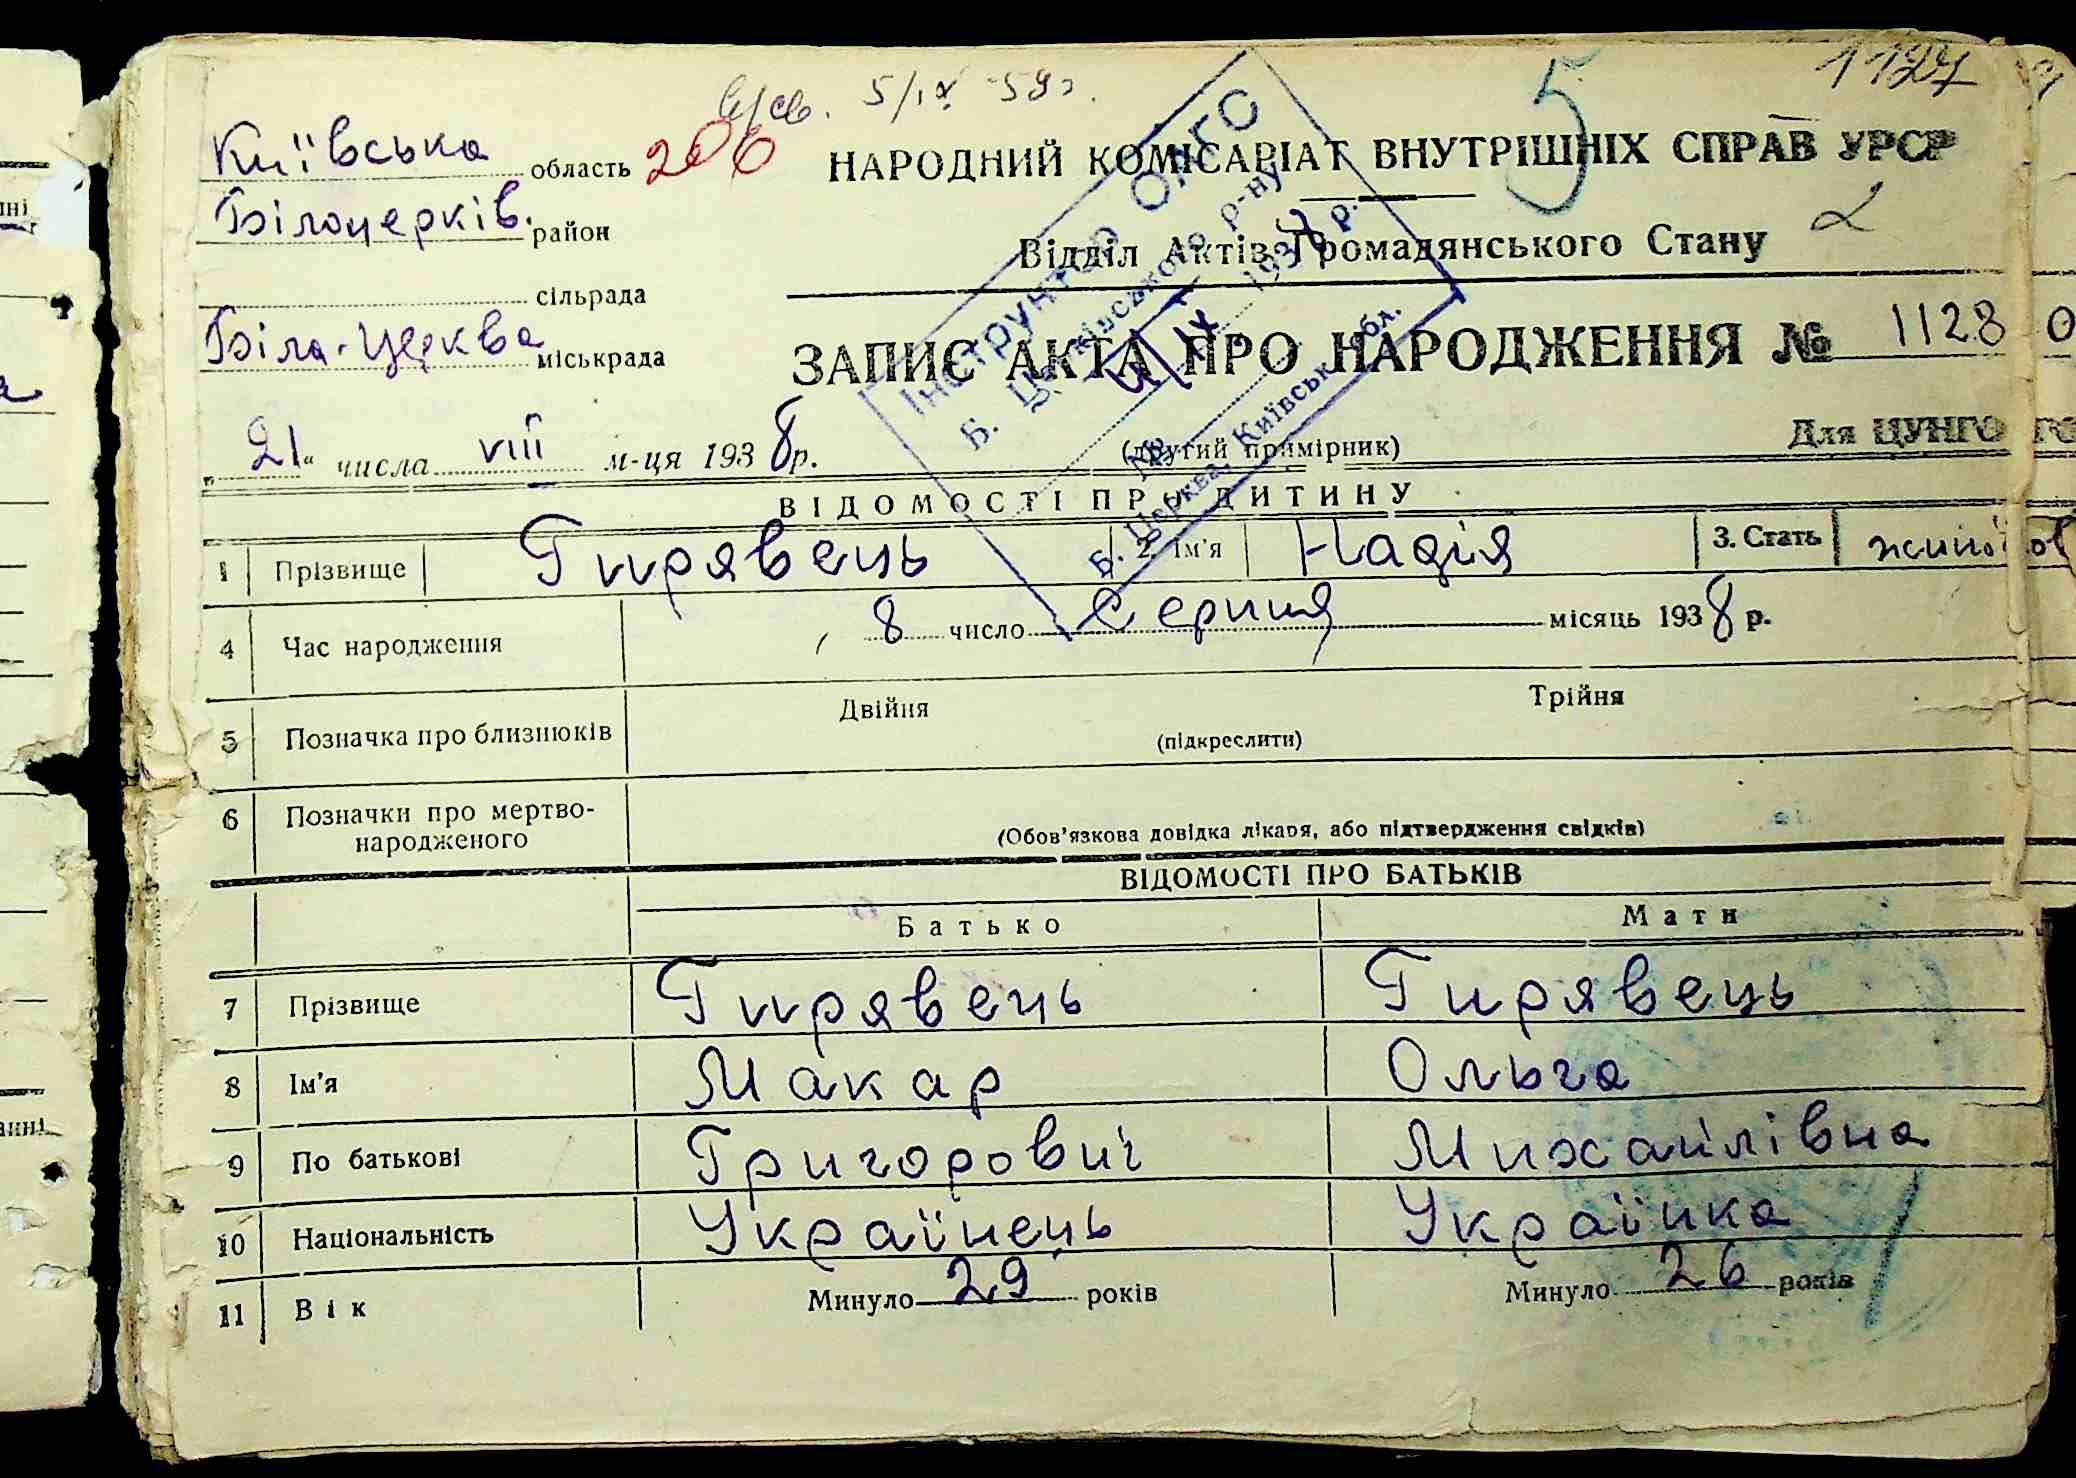 1127
5/ІХ 59 г.
5
Київська область 206 НАРОДНИЙ КОМІСАРІАТ ВНУТРІШНІХ СПРАВ УРСР
Білоцерків. район
Відділ Актів Громадянського Стану 2
сільрада
Біла-Церква міськрада
ЗАПИС АКТА ПРО НАРОДЖЕННЯ № 1128
„21“ числа VIII м-ця 1938 р.
(другий примірник)
Для ЦУНГО
Інструктор ОАГС
Б. Церківського р-ну
4/ІХ 1938 р.
№
Б. Церква, Київськ. обл.
ВІДОМОСТІ ПРО ДИТИНУ
1 Прізвище Гирявець 2. Ім'я Надія 3. Стать
4 Час народження 8 число Серпня місяць 1938 р.
5 Позначка про близнюків Двійня Трійня
(підкреслити)
6 Позначки про мертво-
народженого
(Обов'язкова довідка лікаря, або підтвердження свідків)
ВІДОМОСТІ ПРО БАТЬКІВ
Батько Мати
7 Прізвище Гирявець Гирявець
8 Ім'я Макар Ольга
9 По батькові Григорович Михайлівна
10 Національність Українець Українка
11 Вік Минуло 29 років Минуло 26 років